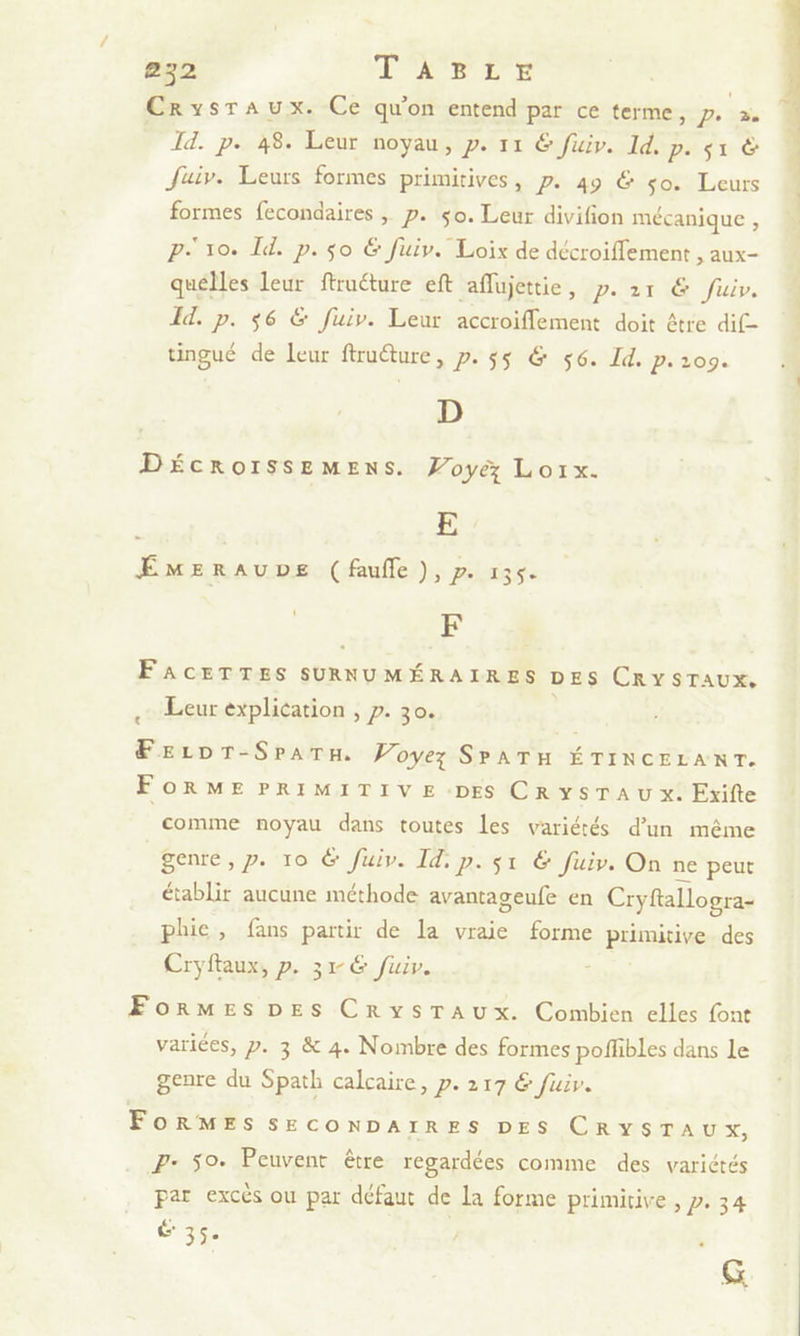 232 TABLE
CRYSTAUX. Ce qu'on entend par ce terme, p. 2.
Id. p. 48. Leur noyau, p. 11 & ſuiv. Id. p. 51 &
ſuiv. Leurs formes primitives, p. 49 & 50. Leurs
formes ſecondaires, p. 50. Leur diviſion mécanique,
p. 10. Id. p. 50 & ſuiv. Loix de décroiſſement, aux-
quelles leur ſtructure eſt aſſujettie, p. 21 & ſuiv.
Id. p. 56 & ſuiv. Leur accroiſſement doit être diſ-
tingué de leur ſtructure, p. 55 & 56. Id. p. 209.
D
DÉCROISSEMENS. Voyez LOIX.
E
ÉMERAUDE (fauſſe), p. 135.
F
FACETTES SURNUMÉRAIRES DES CRYSTAUX.
Leur explication, p. 30.
FELDT-SPATH. Voyez SPATH ÉTINCELANT.
FORME PRIMITIVE DES CRYSTAUX. Exiſte
comme noyau dans toutes les variétés d'un même
genre, p. 10 & ſuiv. Id. p. 51 & ſuiv. On ne peut
établir aucune méthode avantageuſe en Cryſtallogra-
phie, ſans partir de la vraie forme primitive des
Cryſtaux, p. 31 & ſuiv.
FORMES DES CRYSTAUX. Combien elles ſont
variées, p. 3 & 4. Nombre des formes poſſibles dans le
genre du Spath calcaire, p. 217 & ſuiv.
FORMES SECONDAIRES DES CRYSTAUX,
p. 50. Peuvent être regardées comme des variétés
par excès ou par défaut de la forme primitive, p. 34
& 35.
G